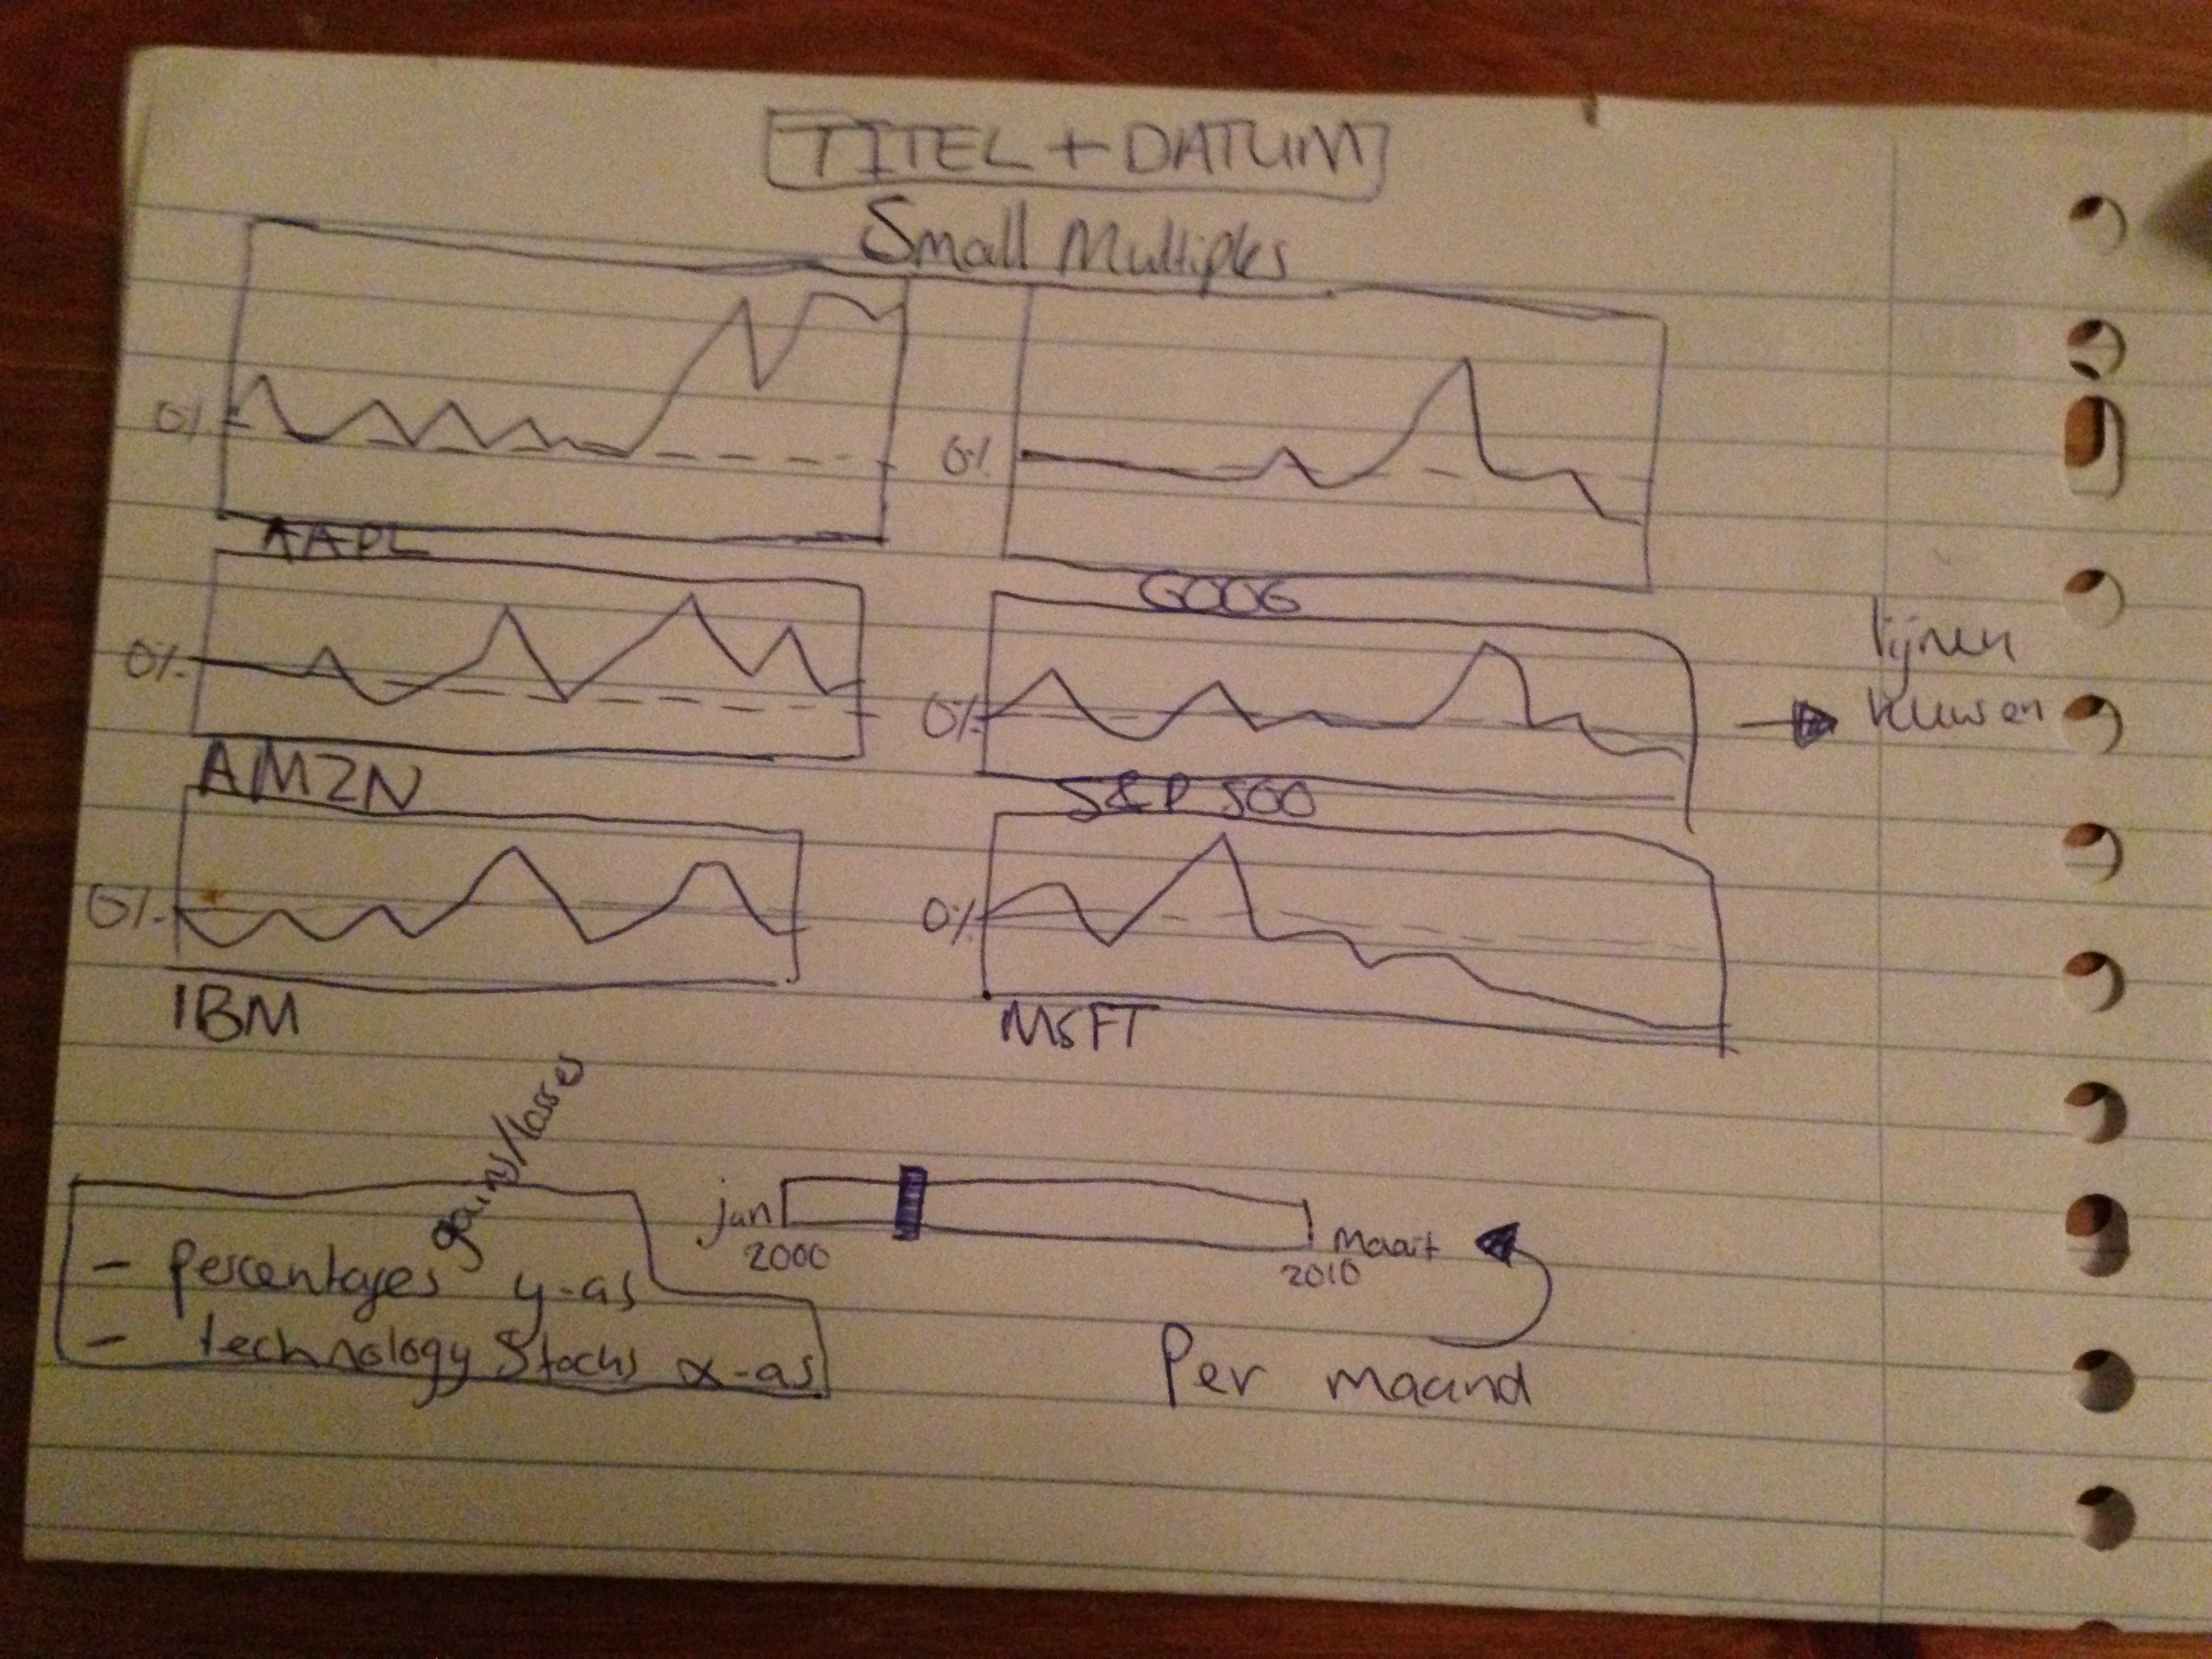 TITEL + DATUM
Small Multiples
0%
0%
AAPL
GOOG
0%
0%
lijnen
kleuren
AMZN
S&P 500
0%
0%
IBM
MSFT
gains/losses
- percentages y-as
- technology Stocks x-as
jan
2000
Maart
2010
Per maand